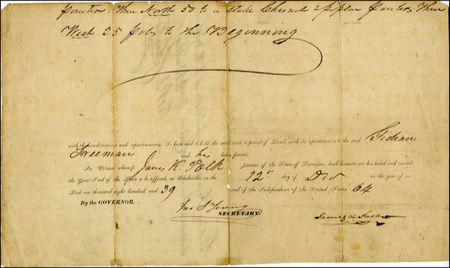 pointers Then North 50 to a Stake Chesnut & pointers Then
West 25 poles to the Beginning
with the hereditaments and appurtenances. To have and to hold the said tract or parcel of Land, with its appurtenances to the said Gideon
Freeman and his heirs forever.
In Witness whereof, James K. Polk Governor of the State of Tennessee, hath hereunto set his hand and caused
the Great Seal of the State to be affixed, at Nashville, on the 12th day of Dec in the year of our
Lord one thousand eight hundred and 39 and of the Independence of the United States 64
By the GOVERNOR.
Jno S Young SECRETARY
James K Polk